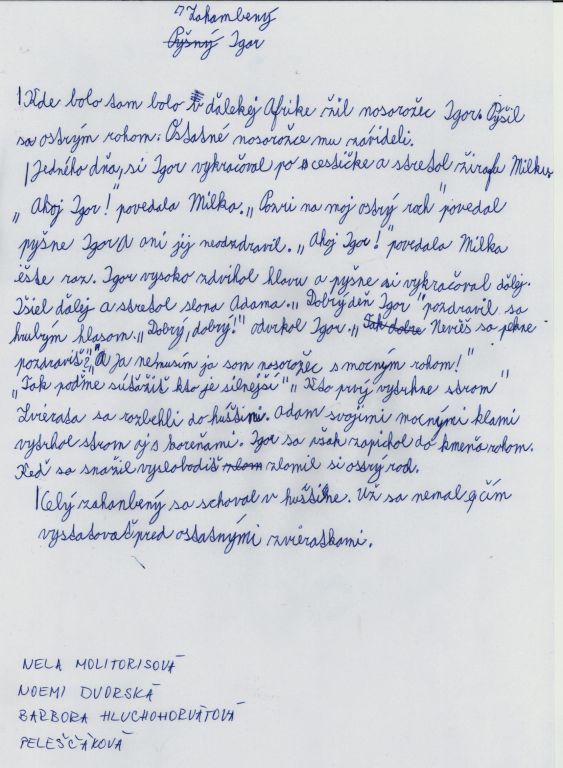 Zahambený
Pyšný Igor
Kde bolo tam bolo v ďalekej Afrike žil nosorožec Igor. Pýšil
sa ostrým rohom. Ostatné nosorožce mu závideli.
Jedného dňa, si Igor vykračoval po cestičke a stretol žirafu Milku
„Ahoj Igor!" povedala Milka. „Pozri na moj ostrý roh" povedal
pyšne Igor a ani jej neodzdravil. „Ahoj Igor!" povedala Milka
ešte raz. Igor vysoko zdvihol hlavu a pyšne si vykračoval ďalej.
Išiel ďalej a stretol slona Adama. „Dobrý deň Igor" pozdravil sa
hrubým hlasom. „Dobrý, dobrý!" odvrkol Igor. „Tak dobre Nevieš sa pekne
pozdraviť?" „A Ja nemusím ja som nosorožec s mocným rohom!"
„Tak poďme súťažiť kto je silnejší" „Kto prvý vytrhne strom"
Zvieratá sa rozbehli do húštiny. Adam svojimi mocnými klami
vytrhol strom aj s koreňami. Igor sa však zapichol do kmeňa rohom.
Keď sa snažil vyslobodiť zlom zlomil si ostrý roh.
Celý zahanbený sa schoval v húštine. Už sa nemal čím
vystatovať pred ostatnými zvieratkami.
NELA MOLITORISOVÁ
NOEMI DVORSKÁ
BARBORA HLUCHOHORVÁTOVÁ
PELEŠČÁKOVÁ